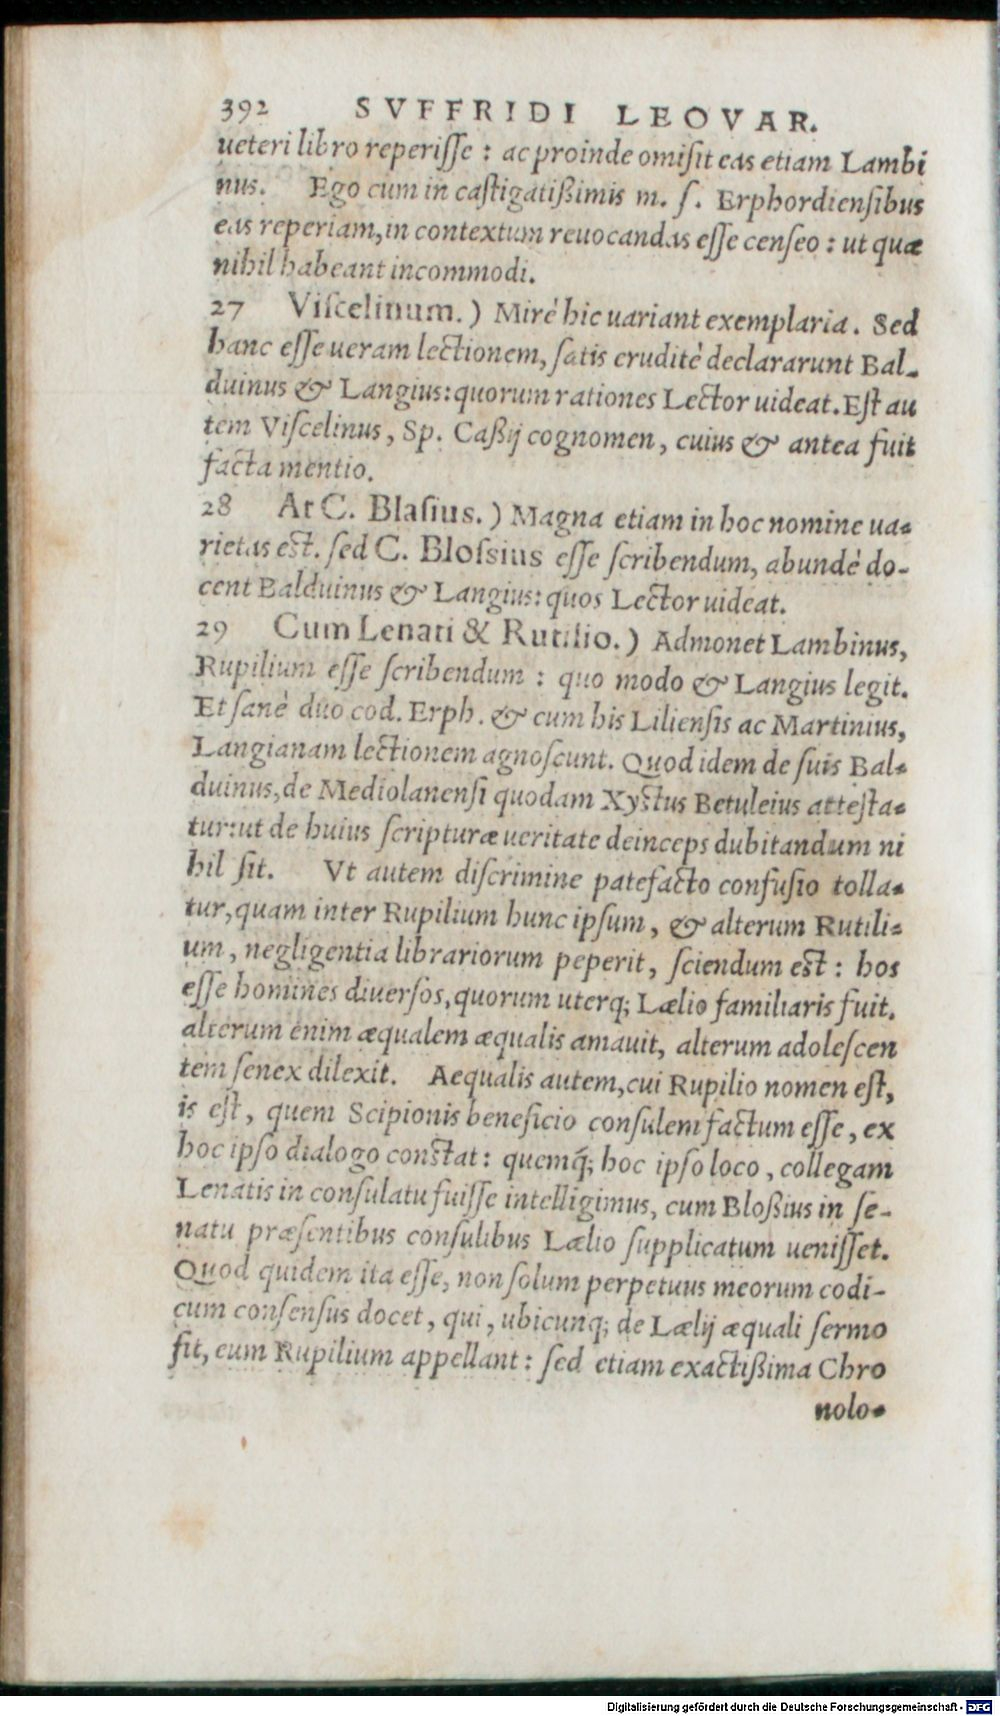 392 SVFFRIDI LEOVAR.
ueteri libro reperiſſe : ac proinde omiſit eas etiam Lambi
nus. Ego cum in caſtigatißimis m. ſ. Erphordienſibus
eas reperiam, in contextum reuocandas eſſe cenſeo : ut quæ
nihil habeant incommodi.
27 Viſcelinum.) Mirè hic uariant exemplaria. Sed
hanc eſſe ueram lectionem, ſatis eruditè declararunt Bal-
duinus & Langius: quorum rationes Lector uideat. Eſt au
tem Viſcelinus, Sp. Caßij cognomen, cuius & antea fuit
facta mentio.
28 At C. Blaſius.) Magna etiam in hoc nomine ua-
rietas eſt. ſed C. Bloſsius eſſe ſcribendum, abundè do-
cent Balduinus & Langius: quos Lector uideat.
29 Cum Lenati & Rutilio.) Admonet Lambinus,
Rupilium eſſe ſcribendum : quo modo & Langius legit.
Et ſanè duo cod. Erph. & cum his Lilienſis ac Martinius,
Langianam lectionem agnoſcunt. Quod idem de ſuis Bal-
duinus, de Mediolanenſi quodam Xyſtus Betuleius atteſta-
tur: ut de huius ſcripturæ ueritate deinceps dubitandum ni
hil ſit. Vt autem diſcrimine patefacto confuſio tolla-
tur, quam inter Rupilium hunc ipſum, & alterum Rutili-
um, negligentia librariorum peperit, ſciendum eſt : hos
eſſe homines diuerſos, quorum uterq; Lælio familiaris fuit.
alterum enim æqualem æqualis amauit, alterum adoleſcen
tem ſenex dilexit. Aequalis autem, cui Rupilio nomen eſt,
is eſt, quem Scipionis beneficio conſulem factum eſſe, ex
hoc ipſo dialogo conſtat : quemq́; hoc ipſo loco, collegam
Lenatis in conſulatu fuiſſe intelligimus, cum Bloßius in ſe-
natu præſentibus conſulibus Lælio ſupplicatum ueniſſet.
Quod quidem ita eſſe, non ſolum perpetuus meorum codi-
cum conſenſus docet, qui, ubicunq; de Lælij æquali ſermo
fit, eum Rupilium appellant : ſed etiam exactißima Chro
nolo-
Digitalisierung gefördert durch die Deutsche Forschungsgemeinschaft - DFG